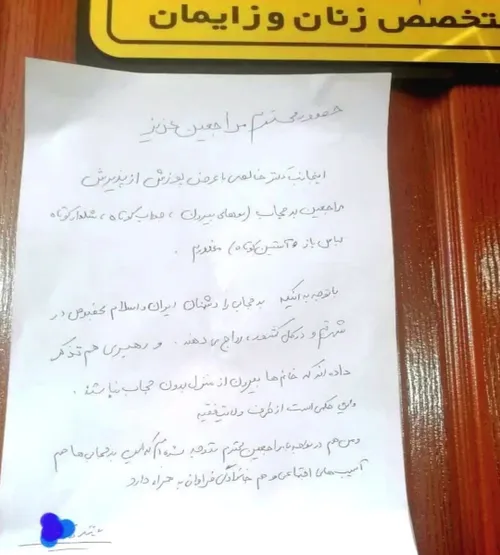 متخصص زنان و زایمان
حضور محترم مراجعین عزیز
اینجانب دکتر خالصی با عرض پوزش از پذیرش
مراجعین بدحجاب (موهای بیرون، جوراب کوتاه، شلوار کوتاه
لباس باز و آستین کوتاه) معذورم.
با توجه به اینکه بدحجابی را دشمنان ایران و اسلام بخصوص در
شهر قم و در کل کشور، رواج می دهند. و رهبری هم تذکر
داده اند که خانم ها بیرون از منزل بدون حجاب نباشند.
و این حکمی است از طرف ولایت فقیه
و من هم در مواجهه با مراجعین محترم متوجه شده ام که این بدحجابی ها هم
آسیب های اجتماعی و هم خانوادگی فراوان به همراه دارد